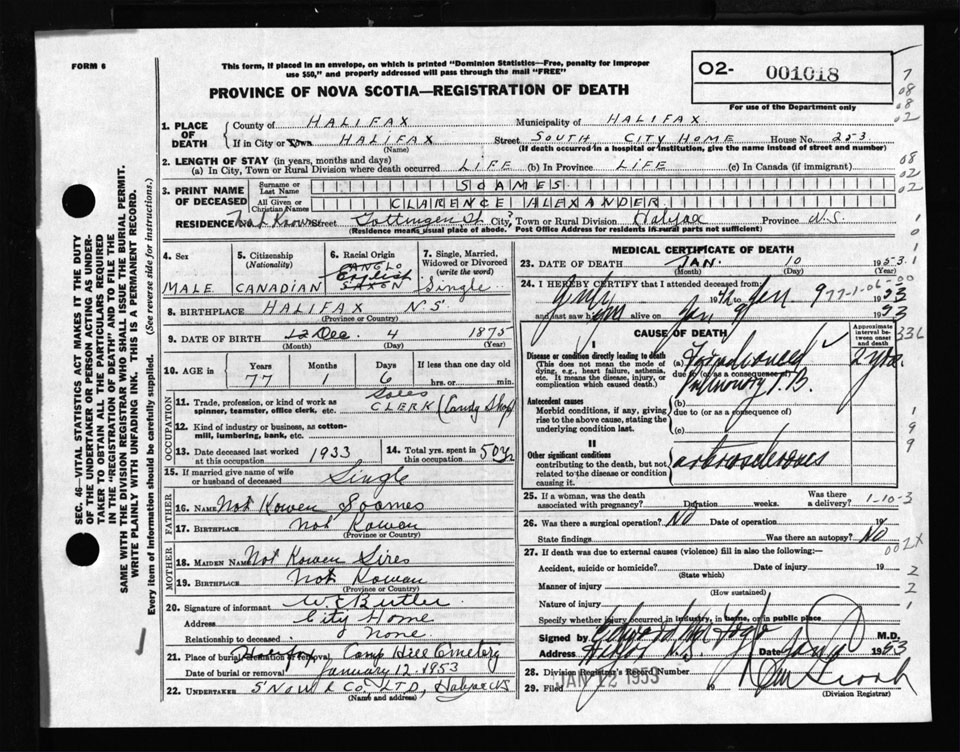 FORM 6
This form, if placed in an envelope, on which is printed "Dominion Statistics—Free, penalty for improper
use $50," and properly addressed will pass through the mail "FREE"
PROVINCE OF NOVA SCOTIA—REGISTRATION OF DEATH
02- 001018
For use of the Department only
7
08
08
02
1. PLACE OF DEATH
County of HALIFAX Municipality of HALIFAX
If in City or Town HALIFAX Street SOUTH CITY HOME House No. 253
(Name) (If death occurred in a hospital or institution, give the name instead of street and number)
2. LENGTH OF STAY (in years, months and days)
(a) In City, Town or Rural Division where death occurred LIFE (b) In Province LIFE (c) In Canada (if immigrant)
08
02
02
3. PRINT NAME OF DECEASED
Surname or Last Name SOAMES
All Given or Christian Names CLARENCE ALEXANDER
RESIDENCE Not Known Street Gottingen St. City, Town or Rural Division Halifax Province N.S.
(Residence means usual place of abode. Post Office Address for residents in rural parts not sufficient)
4. Sex
MALE
5. Citizenship
(Nationality)
CANADIAN
6. Racial Origin
ANGLO
English
SAXON
7. Single, Married, Widowed or Divorced
(write the word)
Single
8. BIRTHPLACE HALIFAX N.S.
(Province or Country)
9. DATE OF BIRTH 12 Dec 4 1875
(Month) (Day) (Year)
10. AGE in Years Months Days If less than one day
77 1 6 hrs. or min.
OCCUPATION
11. Trade, profession, or kind of work as
spinner, teamster, office clerk, etc. Sales CLERK (Candy Shop)
12. Kind of industry or business, as cotton-
mill, lumbering, bank, etc.
13. Date deceased last worked
at this occupation 1933
14. Total yrs. spent in
this occupation 50 yrs
15. If married give name of wife
or husband of deceased Single
FATHER
16. NAME Not Kowen Soames
17. BIRTHPLACE Not Kowen
(Province or Country)
MOTHER
18. MAIDEN NAME Not Kowen Sires
19. BIRTHPLACE Not Kowen
(Province or Country)
20. Signature of informant W. E Butler
Address City Home
Relationship to deceased None
21. Place of burial, cremation or removal Halifax Camp Hill Cemetery
Date of burial or removal January 12-1953
22. UNDERTAKER SNOW & CO. LTD, Halifax NS
(Name and address)
MEDICAL CERTIFICATE OF DEATH
23. DATE OF DEATH JAN. 10 1953
(Month) (Day) (Year)
24. I HEREBY CERTIFY that I attended deceased from
to Jan 9 1953
777-1-06
and last saw him alive on Jan 9 1953
CAUSE OF DEATH
Approximate interval between onset and death
I
Disease or condition directly leading to death
(This does not mean the mode of dying, e.g., heart failure, asthenia, etc. It means the disease, injury, or complication which caused death.)
(a)
due to (or as a consequence of)
Pulmonary T.B.
2 yrs.
Antecedent causes
Morbid conditions, if any, giving rise to the above cause, stating the underlying condition last.
(b)
due to (or as a consequence of)
(c)
II
Other significant conditions
contributing to the death, but not related to the disease or condition causing it.
arteriosclerosis
25. If a woman, was the death
associated with pregnancy? Duration weeks Was there a delivery?
1-10-3
26. Was there a surgical operation? NO Date of operation 19
State findings Was there an autopsy? NO
002X
27. If death was due to external causes (violence) fill in also the following:—
Accident, suicide or homicide? Date of injury 19
(State which)
Manner of injury
(How sustained)
Nature of injury
Specify whether injury occurred in industry, in home, or in public place
Signed by M.D.
Address Halifax N.S. Date Jan 1953
28. Division Registrar's Record Number
29. Filed JAN 12 1953 19
(Division Registrar)
SEC. 46—VITAL STATISTICS ACT MAKES IT THE DUTY
OF THE UNDERTAKER OR PERSON ACTING AS UNDER-
TAKER TO OBTAIN ALL THE PARTICULARS REQUIRED
IN THE "REGISTRATION OF DEATH" AND TO FILE THE
SAME WITH THE DIVISION REGISTRAR WHO SHALL ISSUE THE BURIAL PERMIT.
WRITE PLAINLY WITH UNFADING INK. THIS IS A PERMANENT RECORD.
Every item of Information should be carefully supplied. (See reverse side for instructions.)